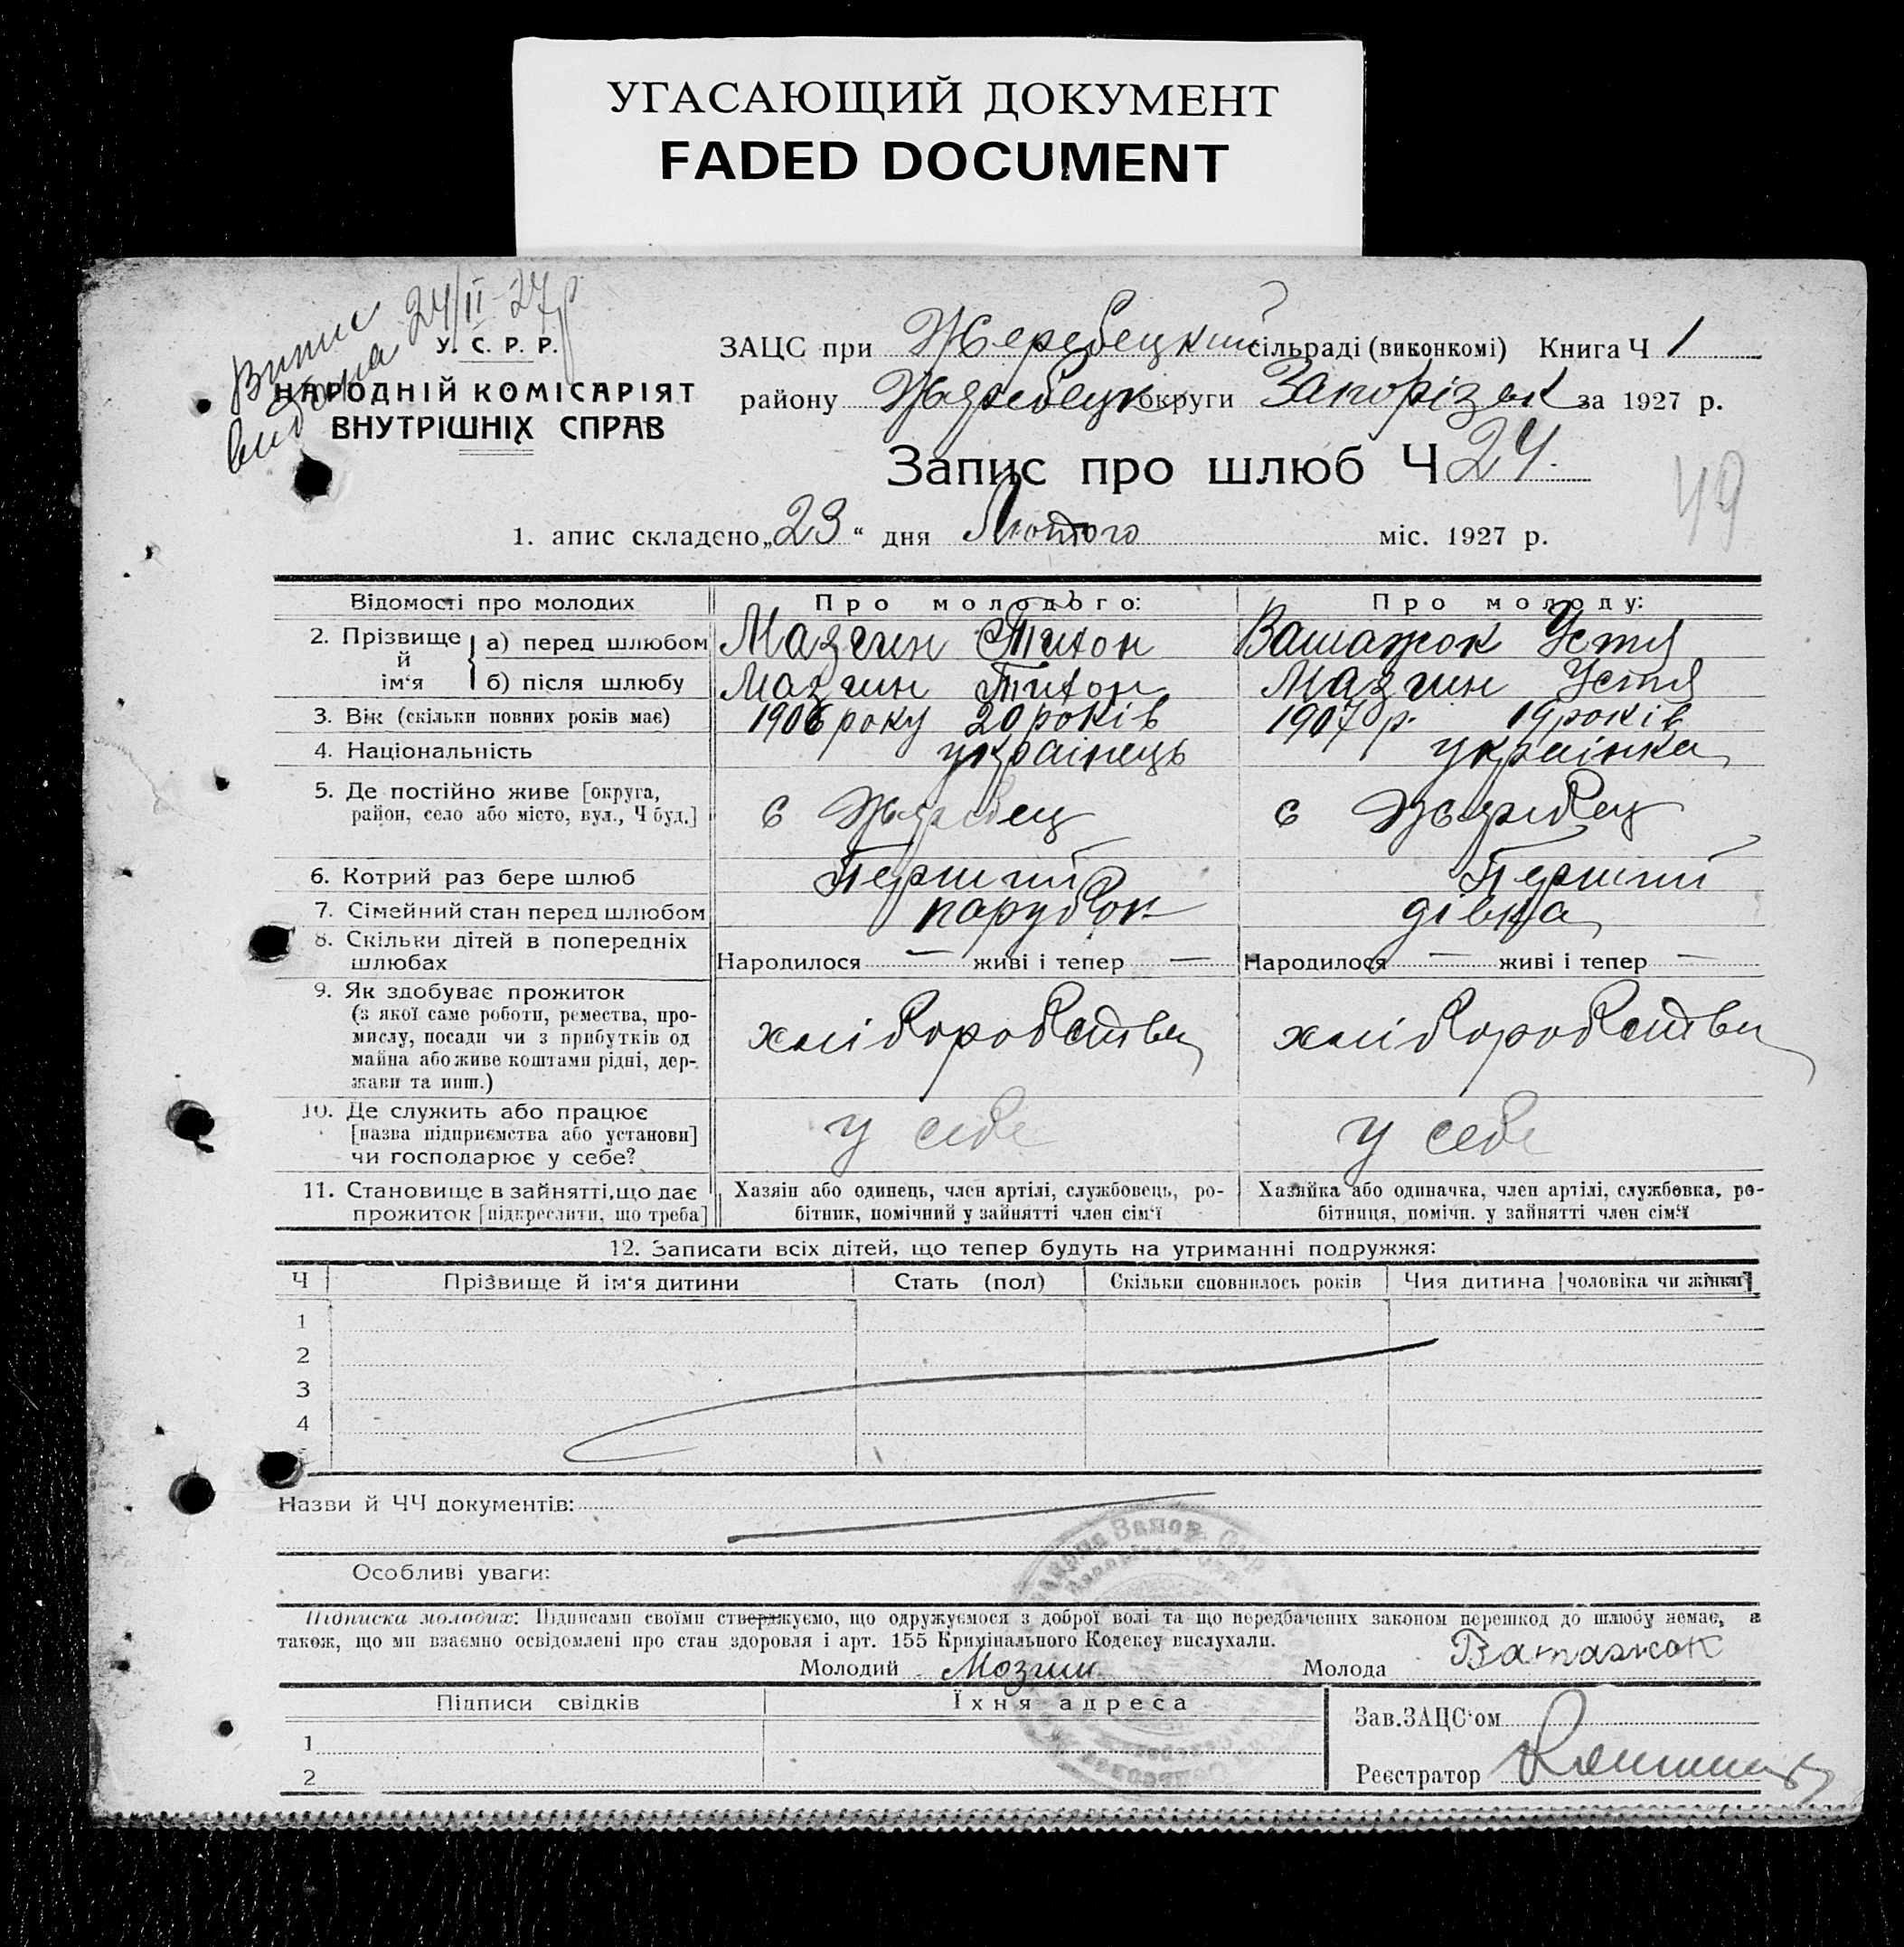 УГАСАЮЩИЙ ДОКУМЕНТ
FADED DOCUMENT
Випис видана 24/II-27р
У. С. Р. Р.
НАРОДНІЙ КОМІСАРІЯТ
ВНУТРІШНІХ СПРАВ
ЗАЦС при Жеребецкий сільраді (виконкомі) Книга Ч 1
району Жеребецк округи Запорізьк за 1927 р.
Запис про шлюб Ч 24.
49
1. апис складено „23“ дня Лютого міс. 1927 р.
Відомості про молодих Про молодого: Про молоду:
2. Прізвище й ім‘я а) перед шлюбом Мазгин Тихон Ватажок Устя
б) після шлюбу Мазгин Тихон Мазгин Устя
3. Вік (скільки повних років має) 1906 року 20 років 1907 р. 19 років
4. Національність украінець украінка
5. Де постійно живе [округа, район, село або місто, вул., Ч буд.] с Жеребец с Жеребец
6. Котрий раз бере шлюб Перший Перший
7. Сімейний стан перед шлюбом парубок дівка
8. Скільки дітей в попередніх шлюбах Народилося — живі і тепер — Народилося — живі і тепер —
9. Як здобуває прожиток
(з якої саме роботи, ремества, про-
мислу, посади чи з прибутків од
майна або живе коштами рідні, дер-
жави та инш.) хліборобства хліборобства
10. Де служить або працює
[назва підприємства або установи]
чи господарює у себе? у себе у себе
11. Становище в зайнятті, що дає
прожиток [підкреслити, що треба]
Хазяїн або одинець, член артілі, службовець, ро-
бітник, помічний у зайнятті член сім‘ї
Хазяйка або одиначка, член артілі, службовка, ро-
бітниця, помічн. у зайнятті член сім‘ї
12. Записати всіх дітей, що тепер будуть на утриманні подружжя:
Ч Прізвище й ім‘я дитини Стать (пол) Скільки сповнилось років Чия дитина [чоловіка чи жінки]
1
2
3
4
Назви й ЧЧ документів:
Особливі уваги:
Підписка молодих: Підписами своїми стверджуємо, що одружуємося з доброї волі та що передбачених законом перешкод до шлюбу немає, а
також, що ми взаємно освідомлені про стан здоровля і арт. 155 Кримінального Кодексу вислухали.
Молодий Мозгин Молода Ватажок
Підписи свідків Їхня адреса
Зав. ЗАЦС‘ом
1
Реєстратор
2